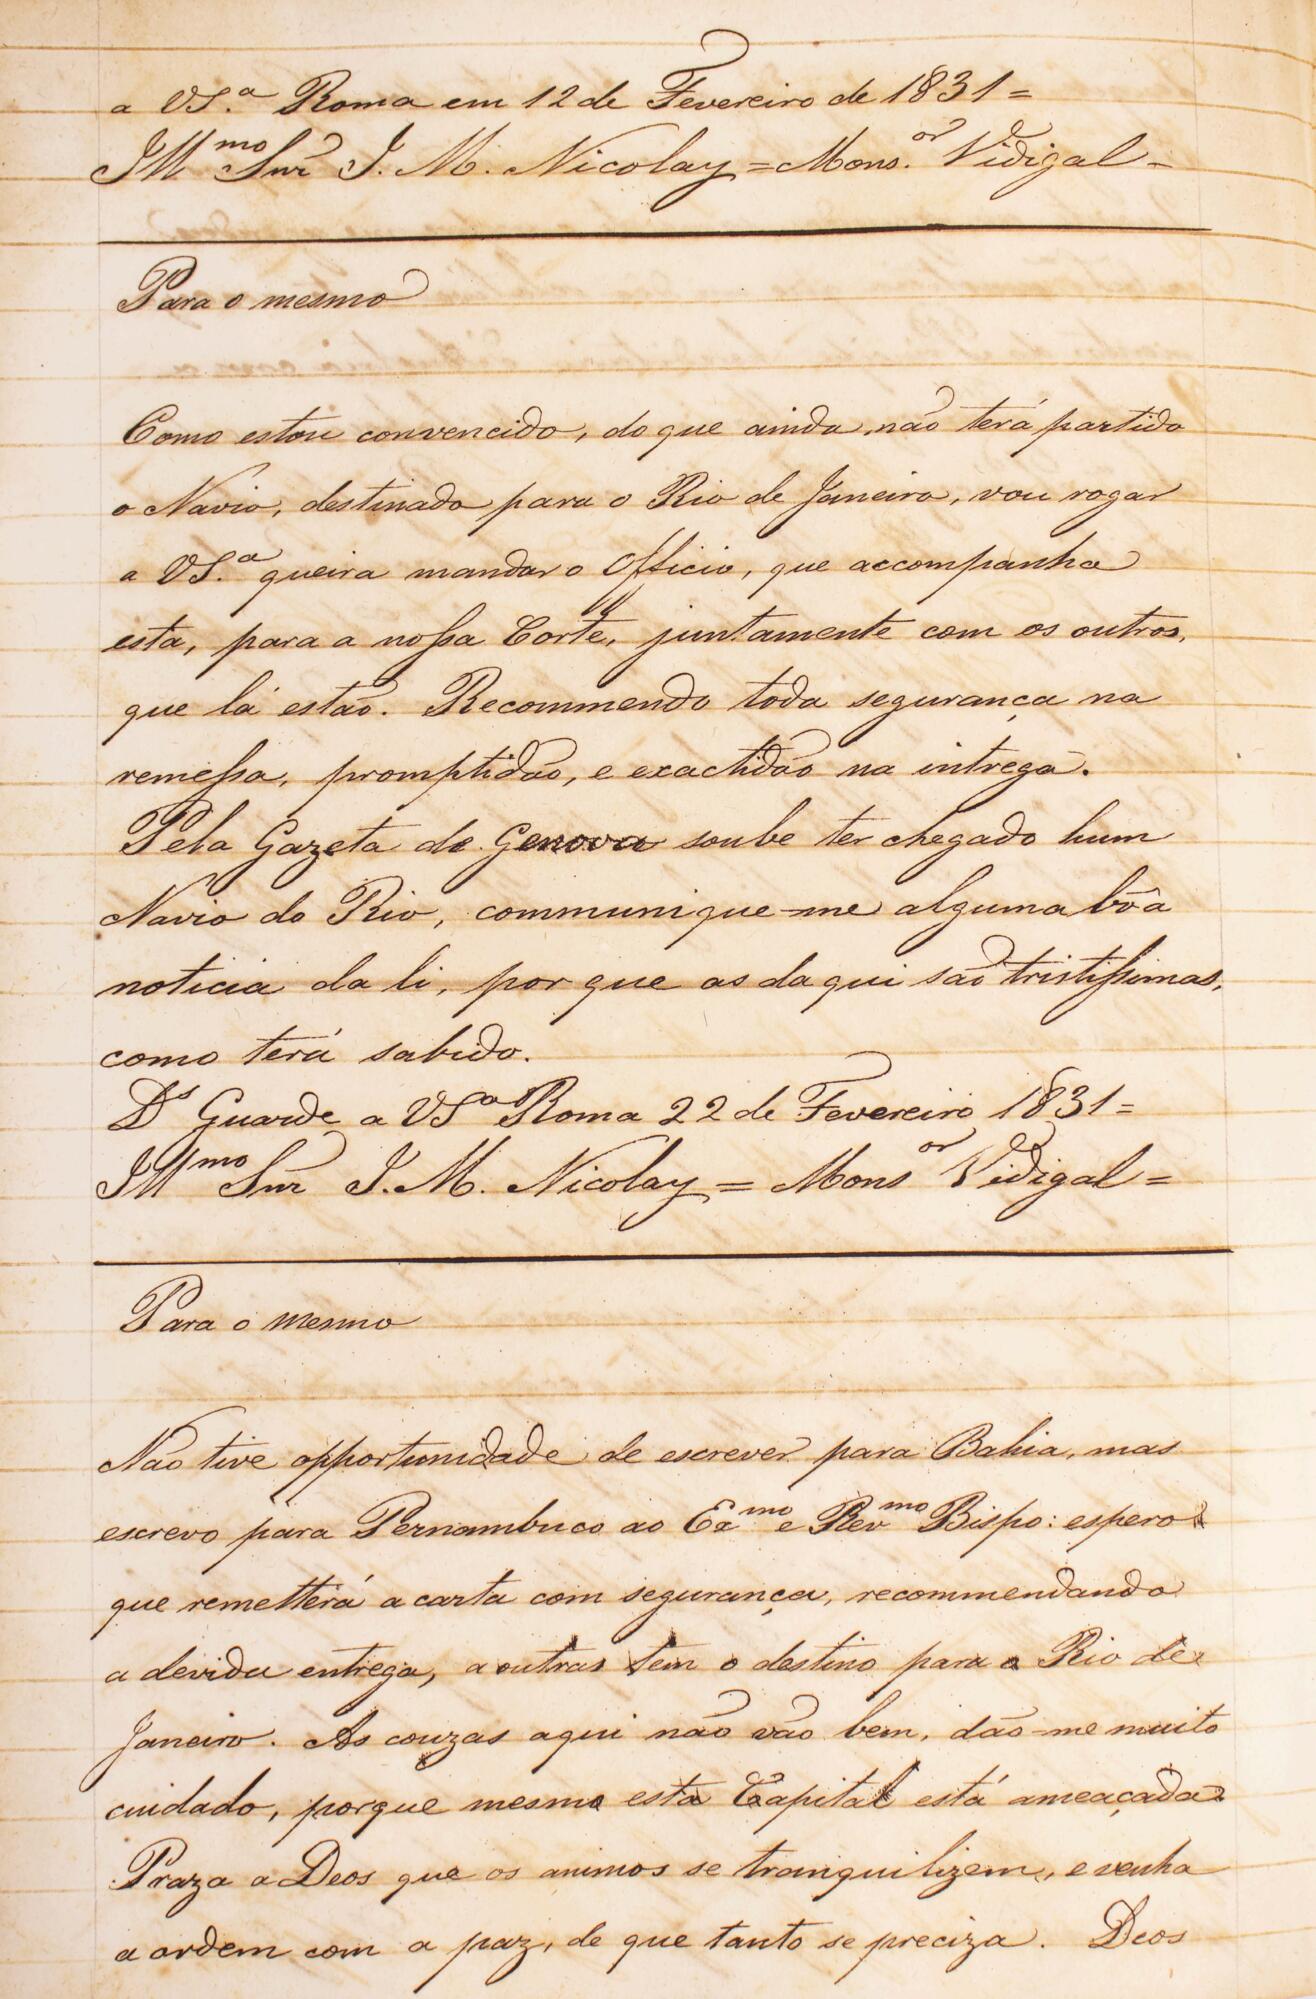 a VS.ª Roma em 12 de Fevereiro de 1831=
Illmo Snr J. M. Nicolay = Mons.or Vidigal =
Para o mesmo
Como estou convencido, do que ainda não terá partido
o Navio, destinado para o Rio de Janeiro, vou rogar
a VS.ª queira mandar o Officio, que accompanha
esta, para a nossa Corte, juntamente com os outros,
que lá estão. Recommendo toda segurança na
remessa, promptidão, e exactidão na intrega.
Pela Gazeta de Genova soube ter chegado hum
Navio do Rio, communique-me alguma bôa
noticia da li, por que as da qui são tristissimas,
como terá sabido.
Ds Guarde a VSª Roma 22 de Fevereiro 1831=
Illmo Snr J. M. Nicolay = Monsor Vidigal =
Para o mesmo
Não tive opportunidade de escrever para Bahia, mas
escrevo para Pernambuco ao Exmo e Revmo Bispo: espero
que remetterá a carta com segurança, recommendando
a devida entrega, a outras tem o destino para o Rio de
Janeiro. As couzas aqui não vão bem, dão-me muito
cuidado, porque mesmo esta Capital está ameaçada.
Praza a Deos que os animos se tranquilizem, e venha
a ordem com a paz, de que tanto se preciza. Deos